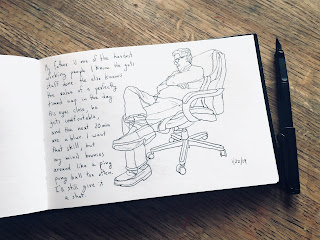 My father is one of the hardest
working people I know. He gets
stuff done. He also knows
the value of a perfectly
timed nap in the day.
His eyes close, he
gets comfortable,
and the next 20 min
are a blur. I want
that skill, but
my mind bounces
around like a ping
pong ball too often.
I'll still give it
a shot.
1/20/19